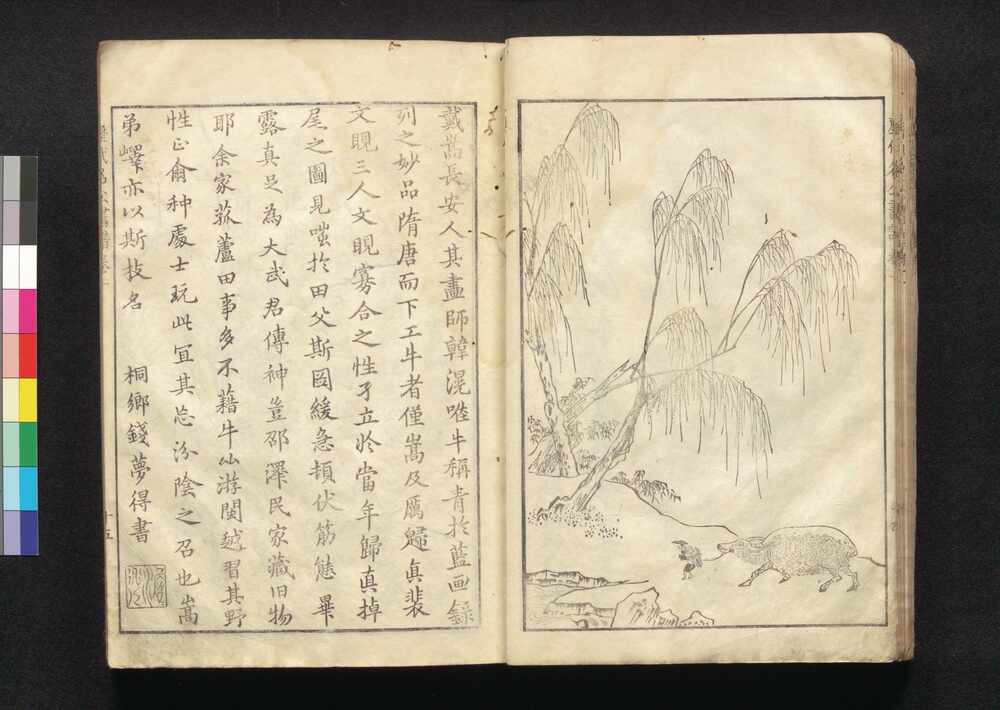 戴嵩長安人其畫師韓滉唯牛稱青於藍画錄
列之妙品隋唐而下工牛者僅嵩及厲歸真裴
文睍三人文睍寡合之性孑立於當年歸真掉
尾之圖見嗤於田父斯圖緩急頓伏筋態畢
露真足為大武君傳神豈邵澤民家藏旧物
耶余家菰蘆田事多不藉牛仙游閩越習其野
性止俞种處士玩此宜其忘汾陰之召也嵩
弟嶧亦以斯技名
桐鄉錢夢得書
十五